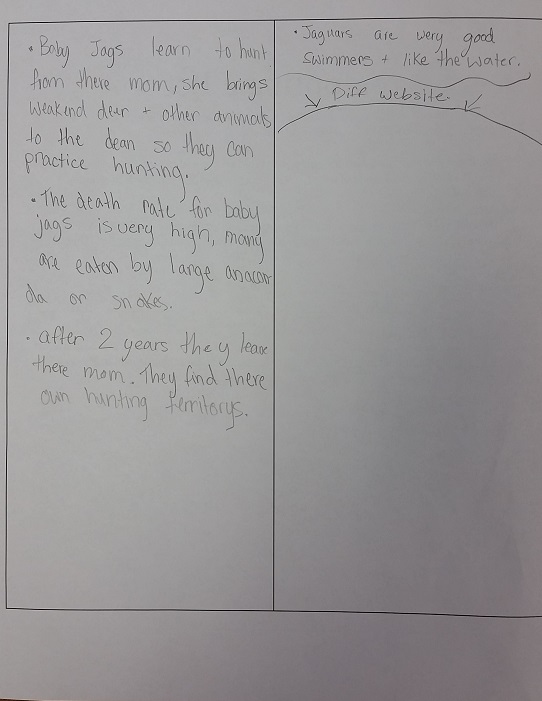 • Baby Jags learn to hunt
from there mom, she brings
weakend dear + other animals
to the dean so they can
practice hunting.
• The death rate for baby
jags is very high, many
are eaten by large anacon
da or snakes.
• after 2 years they leave
there mom. They find there
own hunting territorys.
• Jaguars are very good
Swimmers + like the water.
Diff website.